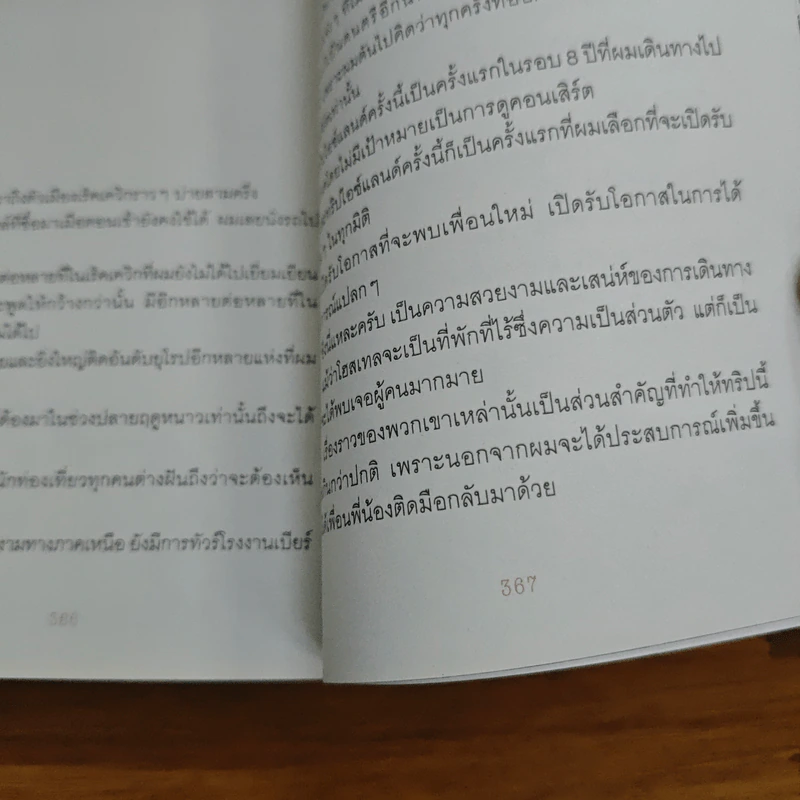 าถึงตัวเมืองเร็คเควิกราว ๆ บ่ายสามครึ่ง
ที่ซื้อมาเมื่อตอนเช้ายังคงใช้ได้ ผมเลยนั่งรถไป
ต่อหลายที่ในเร็คเควิกที่ผมยังไม่ได้ไปเยี่ยมเยียน
ะพูดให้กว้างกว่านั้น มีอีกหลายต่อหลายที่ใน
ไม่ได้ไป
ยและยิ่งใหญ่ติดอันดับยุโรปอีกหลายแห่งที่ผม
ต้องมาในช่วงปลายฤดูหนาวเท่านั้นถึงจะได้
นักท่องเที่ยวทุกคนต่างฝันถึงว่าจะต้องเห็น
งามทางภาคเหนือ ยังมีการทัวร์โรงงานเบียร์
366
เพราะผมดันไปคิดว่าทุกครั้งที่
เท่านั้น
ไอซ์แลนด์ครั้งนี้เป็นครั้งแรกในรอบ 8 ปีที่ผมเดินทางไป
โดยไม่มีเป้าหมายเป็นการดูคอนเสิร์ต
ทริปไอซ์แลนด์ครั้งนี้ก็เป็นครั้งแรกที่ผมเลือกที่จะเปิดรับ
ๆ ในทุกมิติ
รับโอกาสที่จะพบเพื่อนใหม่ เปิดรับโอกาสในการได้
รณ์แปลก ๆ
นี่แหละครับ เป็นความสวยงามและเสน่ห์ของการเดินทาง
แม้ว่าโฮสเทลจะเป็นที่พักที่ไร้ซึ่งความเป็นส่วนตัว แต่ก็เป็น
ะได้พบเจอผู้คนมากมาย
เรื่องราวของพวกเขาเหล่านั้นเป็นส่วนสำคัญที่ทำให้ทริปนี้
กว่าปกติ เพราะนอกจากผมจะได้ประสบการณ์เพิ่มขึ้น
ได้เพื่อนพี่น้องติดมือกลับมาด้วย
367